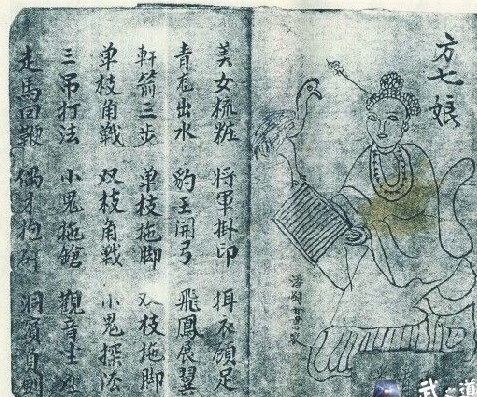 方七娘
美女梳粧 將軍掛印 衣顧足
青龙出水 豹王開弓 飛鳳展翼
軒箭三步 单枝拖脚 双枝拖脚
单枝角戰 双枝角戰 小鬼探
三吊打法 小鬼拖鎗 觀音坐
走馬回鞭 洞賓負劍
武之道